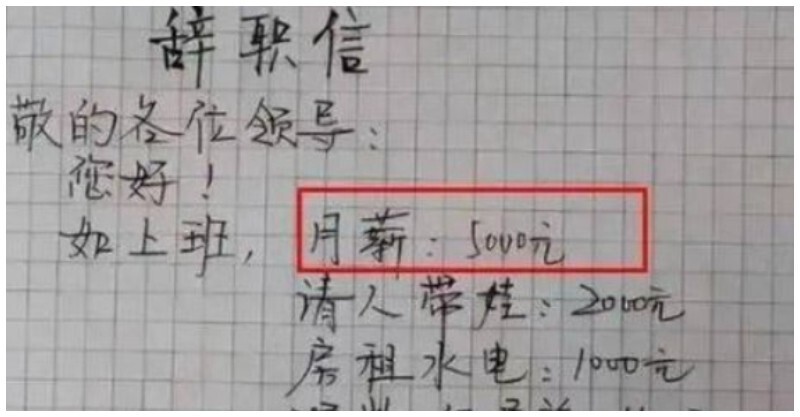 辞职信
敬的各位领导：
您好！
如上班，月薪：5000元
请人带娃：2000元
房租水电：1000元